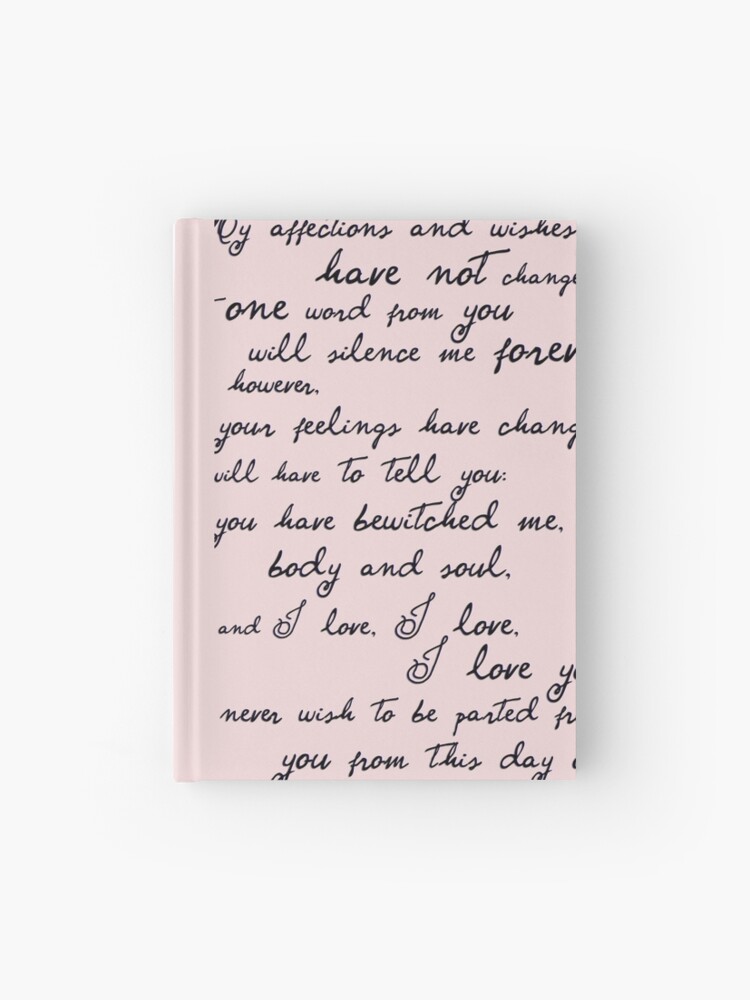 My affections and wishes
have not change
one word from you
will silence me forev
however,
your feelings have chang
will have to tell you:
you have bewitched me,
body and soul,
and I love, I love,
I love yo
never wish to be parted fr
you from this day o